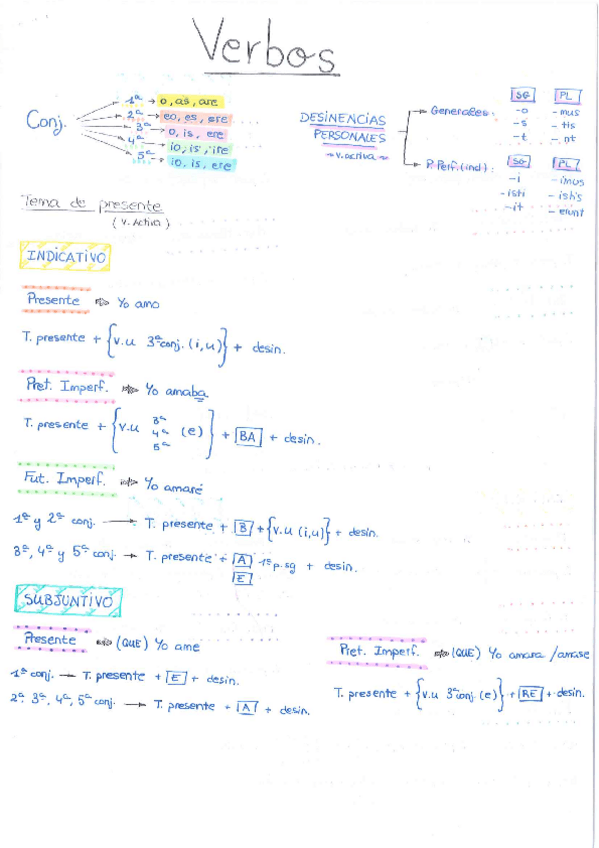 Verbos
Conj.
1ª → o, as, are
2ª → eo, es, ere
3ª → o, is, ere
4ª → io, is, ire
5ª → io, is, ere
DESINENCIAS
PERSONALES
→ V. activa ←
Generales:
SG PL
-o -mus
-s -tis
-t -nt
P. Perf. (ind):
SG PL
-i -imus
-isti -istis
-it -erunt
Tema de presente
(V. Activa)
INDICATIVO
Presente ⇒ Yo amo
T. presente + {v.u 3ª conj. (i,u)} + desin.
Pret. Imperf. ⇒ Yo amaba
T. presente + {v.u 3ª 4ª 5ª (e)} + BA + desin.
Fut. Imperf. ⇒ Yo amaré
1ª y 2ª conj. → T. presente + B + {v.u (i,u)} + desin.
3ª, 4ª y 5ª conj → T. presente + A 1ª p.sg + desin.
E
SUBJUNTIVO
Presente ⇒ (QUE) Yo ame
1ª conj. → T. presente + E + desin.
2ª, 3ª, 4ª, 5ª conj. → T. presente + A + desin.
Pret. Imperf. ⇒ (QUE) Yo amara /amase
T. presente + {v.u 3ª conj. (e)} + RE + desin.